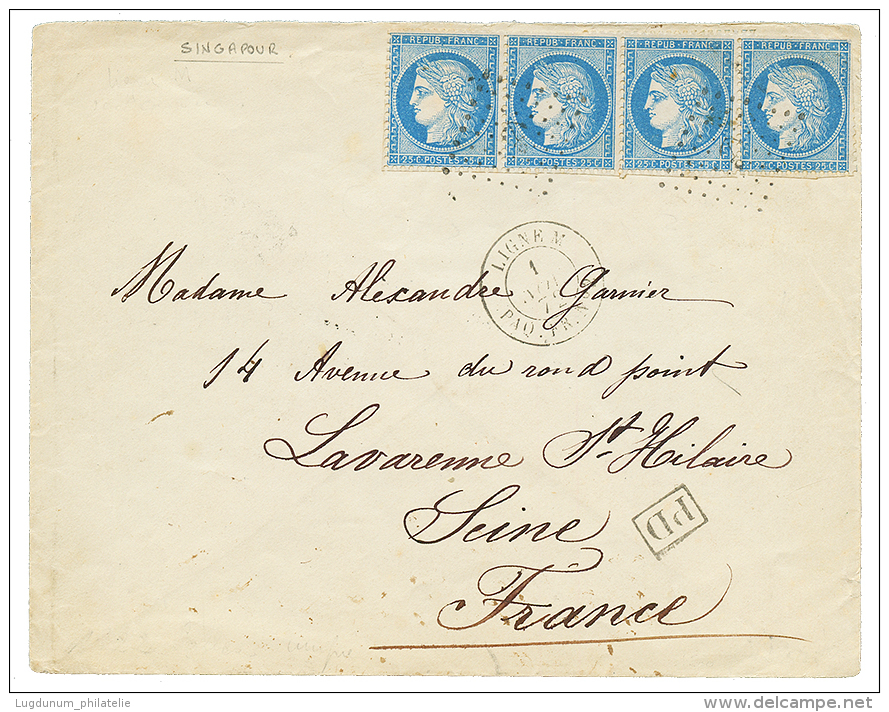 SINGAPOUR
REPUB·FRANC· REPUB·FRANC· REPUB·FRANC· REPUB·FRANC·
25·C·POSTES·25·C 25·C·POSTES·25·C 25·C·POSTES·25·C 25·C·POSTES·25·C
LIGNE M
1
PAQ. FR. N
Madame Alexandre Garnier
14 Avenue du rond point
Lavarenne St. Hilaire
Seine
PD
France
Lugdunum_philatelie
delcampe.net